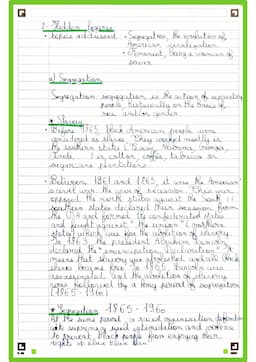 2- Hidden figures
• topics addressed • Segregation, the evolution of American segregation
• Feminist, being a woman of power
a) Segregation
Segregation: segregation is the action of separating people, historically on the basis of race and/or gender.
★ Slavery
• Before 1865, black American people were considered as slaves. They worked mostly in the southern states (Texas, Alabama, Georgia, ) in cotton, coffee, tobacco or sugarcane plantations.
• Between 1861 and 1865, it was the American civil war: the war of secession. This war opposed the north states against the south. 11 southern states declared their secession from the USA and formed the confederated states and fought against "the union" (northern states) which was for the abolition of slavery. In 1863, the president Abraham Lincoln declared the "emancipation declaration". It means that slavery was abolished and all black slaves became free. In 1865, Lincoln was assassinated. And the abolition of slavery was followed by a long period of segregation (1865-196)
★ Segregation 1865-196
At the same period, a racist organisation defending white supremacy used intimidation and violence to prevent black people from enjoying their rights